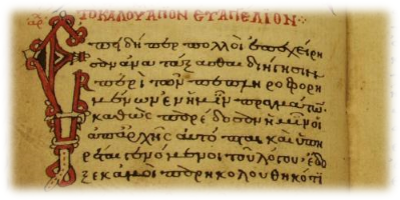 ΤΟ ΚΑ ΛΟΥ ΑΓΙΟΝ ΕΥΑΓΓΕΛΙΟΝ
Ἐπειδήπερ πολλοὶ ἐπεχείρη
σαν ἀνατάξασθαι διήγησιν
περὶ τῶν πεπληροφορη
μένων ἐν ἡμῖν πραγμάτων·
καθὼς παρέδοσαν ἡμῖν οἱ
ἀπαρχῆς αὐτόπται καὶ ὑπη
ρέται γενόμενοι τοῦ λόγου· ἔδο
ξε κἀμοὶ παρηκολουθηκότι